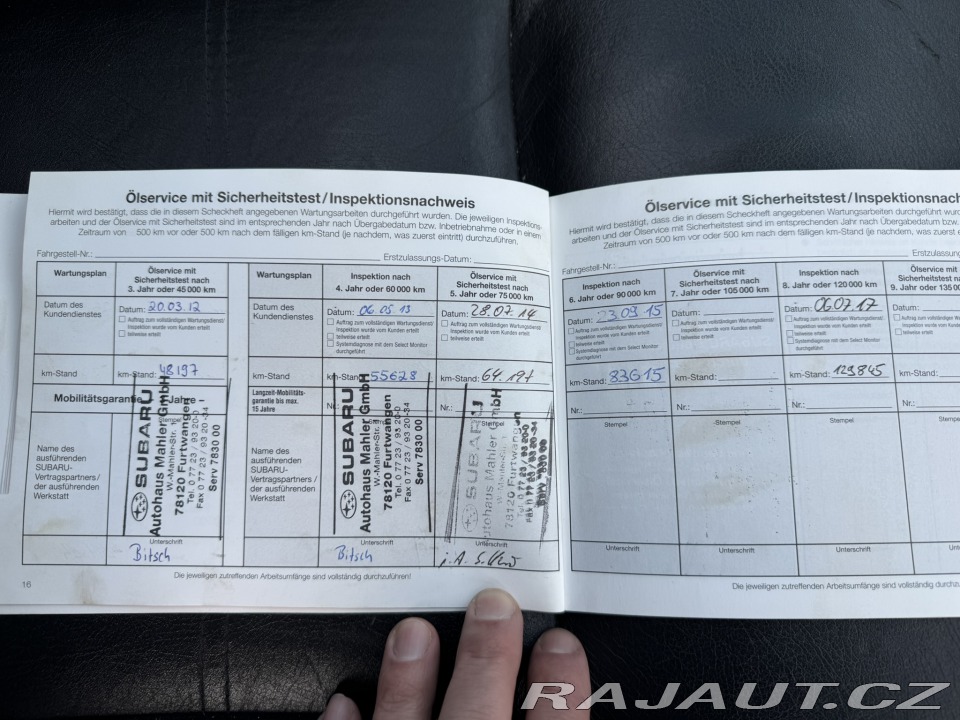 Ölservice mit Sicherheitstest/Inspektionsnachweis
Hiermit wird bestätigt, dass die in diesem Scheckheft angegebenen Wartungsarbeiten durchgeführt wurden. Die jeweiligen Inspektions-
arbeiten und der Ölservice mit Sicherheitstest sind im entsprechenden Jahr nach Übergabedatum bzw. Inbetriebnahme oder in einem
Zeitraum von 500 km vor oder 500 km nach dem fälligen km-Stand (je nachdem, was zuerst eintritt) durchzuführen.
Fahrgestell-Nr.: Erstzulassungs-Datum:
Wartungsplan
Ölservice mit
Sicherheitstest nach
3. Jahr oder 45000 km
Datum des
Kundendienstes
Datum: 20.03.12
Auftrag zum vollständigen Wartungsdienst/
Inspektion wurde vom Kunden erteilt
teilweise erteilt
km-Stand
km-Stand: 48197
Mobilitätsgarantie Jahre -
Stempel
Name des
ausführenden
SUBARU-
Vertragspartners/
der ausführenden
Werkstatt
SUBARU
Autohaus Mahler GmbH
W.-Mahler-Str. 1
78120 Furtwangen
Tel. 0 77 23 / 93 20-0
Fax 0 77 23 / 93 20 -34
Serv 7830 00
Unterschrift
Bitsch
Wartungsplan
Inspektion nach
4. Jahr oder 60000 km
Datum des
Kundendienstes
Datum: 06.05.13
Auftrag zum vollständigen Wartungsdienst/
Inspektion wurde vom Kunden erteilt
teilweise erteilt
Systemdiagnose mit dem Select Monitor
durchgeführt
km-Stand
km-Stand: 55628
Langzeit-Mobilitäts-
garantie bis max.
15 Jahre
Nr.:
Name des
ausführenden
SUBARU-
Vertragspartners/
der ausführenden
Werkstatt
SUBARU
Autohaus Mahler GmbH
W.-Mahler-Str.
78120 Furtwangen
Tel. 0 77 23 / 93 20-0
Fax 0 77 23 / 93 20 -34
Serv 7830 00
Unterschrift
Bitsch
Ölservice mit
Sicherheitstest nach
5. Jahr oder 75000 km
Datum: 28.07.14
Auftrag zum vollständigen Wartungsdienst/
Inspektion wurde vom Kunden erteilt
teilweise erteilt
km-Stand: 64.197
Nr.:
Stempel
SUBARU
Autohaus Mahler GmbH
78120 Furtwangen
Unterschrift
i.A.
Die jeweiligen zutreffenden Arbeitsumfänge sind vollständig durchzuführen!
16
Ölservice mit Sicherheitstest/Inspektionsnach
Hiermit wird bestätigt, dass die in diesem Scheckheft angegebenen Wartungsarbeiten durchgeführt
arbeiten und der Ölservice mit Sicherheitstest sind im entsprechenden Jahr nach Übergabedatum bzw.
Zeitraum von 500 km vor oder 500 km nach dem fälligen km-Stand (je nachdem, was zuerst
Fahrgestell-Nr.: Erstzulassung
Inspektion nach
6. Jahr oder 90000 km
Datum: 23.09.15
Auftrag zum vollständigen Wartungsdienst/
Inspektion wurde vom Kunden erteilt
teilweise erteilt
Systemdiagnose mit dem Select Monitor
durchgeführt
km-Stand: 83615
Nr.:
Stempel
Unterschrift
Ölservice mit
Sicherheitstest nach
7. Jahr oder 105000 km
Datum:
Auftrag zum vollständigen Wartungsdienst/
Inspektion wurde vom Kunden erteilt
teilweise erteilt
km-Stand:
Nr.:
Stempel
Unterschrift
Inspektion nach
8. Jahr oder 120000 km
Datum: 06.07.17
Auftrag zum vollständigen Wartungsdienst/
Inspektion wurde vom Kunden erteilt
teilweise erteilt
Systemdiagnose mit dem Select Monitor
durchgeführt
km-Stand: 129845
Nr.:
Stempel
Unterschrift
Ölservice
Sicherheitstest
9. Jahr oder 135
Datum:
Auftrag zum
Inspektion
teilweise
km-Stand:
Nr.:
Unterschr
Die jeweiligen zutreffenden Arbeitsumfänge sind vollständig durchzu
RAJAUT.CZ